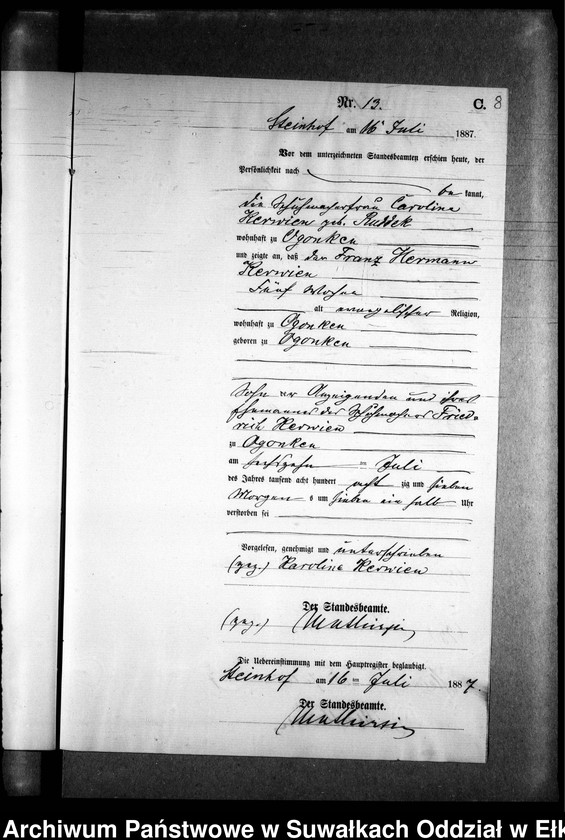 Nr. 13. C. 8
Steinhof am 16 Juli 1887.
Vor dem unterzeichneten Standesbeamten erschien heute, der
Persönlichkeit nach
be kannt,
die Schuhmacherfrau Carolina
Kerwien geb. Ruddek
wohnhaft zu Ogonken
und zeigte an, daß der Franz Hermann
Kerwien
Fünf Wochen
alt evangelischer Religion,
wohnhaft zu Ogonken
geboren zu Ogonken
Sohn der Anzeigenden und ihres
Ehemannes des Schuhmachers Fried=
rich Kerwien
zu Ogonken
am sechszehn ten Juli
des Jahres tausend acht hundert acht zig und sieben
Morgens um sieben ein halb Uhr
verstorben sei
Vorgelesen, genehmigt und unterschrieben
(gez.) Karolina Kerwien
Der Standesbeamte.
(gez.)
Die Uebereinstimmung mit dem Hauptregister beglaubigt.
Steinhof am 16 ten Juli 1887.
Der Standesbeamte.
Archiwum Państwowe w Suwałkach Oddział w Ełk